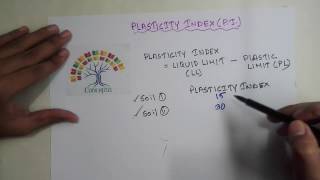 PLASTICITY INDEX (P.I.)
PLASTICITY INDEX
= LIQUID LIMIT - PLASTIC
(LL) LIMIT (PL)
PLASTICITY INDEX
✓ Soil ① 15
✓ Soil ② 30
Concepts